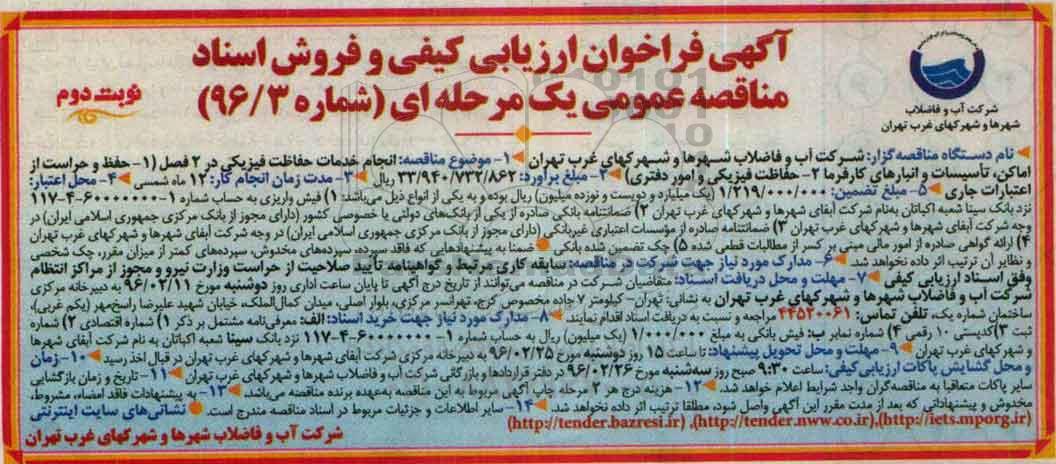 آگهی فراخوان ارزیابی کیفی و فروش اسناد
مناقصه عمومی یک مرحله ای (شماره ۹۶/۳)
نوبت دوم
شرکت آب و فاضلاب
شهرها و شهرکهای غرب تهران
نام دستگاه مناقصه گزار: شرکت آب و فاضلاب شهرها و شهرکهای غرب تهران ۱- موضوع مناقصه: انجام خدمات حفاظت فیزیکی در ۲ فصل (۱- حفظ و حراست از
اماکن، تأسیسات و انبارهای کارفرما ۲- حفاظت فیزیکی و امور دفتری) ۲- مبلغ برآورد: ۳۳/۹۴۰/۷۳۲/۸۶۲ ریال ۳- مدت زمان انجام کار: ۱۲ ماه شمسی ۴- محل اعتبار:
اعتبارات جاری ۵- مبلغ تضمین: ۱/۲۱۹/۰۰۰/۰۰۰ (یک میلیارد و دویست و نوزده میلیون) ریال بوده و به یکی از انواع ذیل می‌باشد: ۱) فیش واریزی به حساب شماره ۱-۶۰۰۰۰۰۰۰-۴-۱۱۷
نزد بانک سینا شعبه اکباتان به‌نام شرکت آبفای شهرها و شهرکهای غرب تهران ۲) ضمانتنامه بانکی صادره از یکی از بانک‌های دولتی یا خصوصی کشور (دارای مجوز از بانک مرکزی جمهوری اسلامی ایران) در
وجه شرکت آبفای شهرها و شهرکهای غرب تهران ۳) ضمانتنامه صادره از مؤسسات اعتباری غیربانکی (دارای مجوز از بانک مرکزی جمهوری اسلامی ایران) در وجه شرکت آبفای شهرها و شهرکهای غرب تهران
۴) ارائه گواهی صادره از امور مالی مبنی بر کسر از مطالبات قطعی شده ۵) چک تضمین شده بانکی ضمنا به پیشنهادهایی که فاقد سپرده، سپرده‌های مخدوش، سپرده‌های کمتر از میزان مقرر، چک شخصی
و نظایر آن ترتیب اثر داده نخواهد شد. ۶- مدارک مورد نیاز جهت شرکت در مناقصه: سابقه کاری مرتبط و گواهینامه تأیید صلاحیت از حراست وزارت نیرو و مجوز از مراکز انتظام
وفق اسناد ارزیابی کیفی ۷- مهلت و محل دریافت اسناد: متقاضیان شرکت در مناقصه می‌توانند از تاریخ درج آگهی تا پایان ساعت اداری روز دوشنبه مورخ ۹۶/۰۲/۱۱ به دبیرخانه مرکزی
شرکت آب و فاضلاب شهرها و شهرکهای غرب تهران به نشانی: تهران- کیلومتر ۷ جاده مخصوص کرج، تهرانسر مرکزی، بلوار اصلی، میدان کمال‌الملک، خیابان شهید علیرضا راسخ‌مهر (یکم غربی)،
ساختمان شماره یک، تلفن تماس: ۴۴۵۲۰۰۶۱ مراجعه و نسبت به دریافت اسناد اقدام نمایند. ۸- مدارک مورد نیاز جهت خرید اسناد: الف: معرفی‌نامه مشتمل بر ذکر ۱) شماره اقتصادی ۲) شماره
ثبت ۳) کدپستی ۱۰ رقمی ۴) شماره نمابر ب: فیش بانکی به مبلغ ۱/۰۰۰/۰۰۰ (یک میلیون) ریال به حساب شماره ۱-۶۰۰۰۰۰۰۰-۴-۱۱۷ نزد بانک سینا شعبه اکباتان به نام شرکت آبفای شهرها
و شهرکهای غرب تهران ۹- مهلت و محل تحویل پیشنهاد: تا ساعت ۱۵ روز دوشنبه مورخ ۹۶/۰۲/۲۵ به دبیرخانه مرکزی شرکت آبفای شهرها و شهرکهای غرب تهران در قبال اخذ رسید ۱۰- زمان
و محل گشایش پاکات ارزیابی کیفی: ساعت ۹:۳۰ صبح روز سه‌شنبه مورخ ۹۶/۰۲/۲۶ در دفتر قراردادها و بازرگانی شرکت آب و فاضلاب شهرها و شهرکهای غرب تهران ۱۱- تاریخ و زمان بازگشایی
سایر پاکات متعاقبا به مناقصه‌گران واجد شرایط اعلام خواهد شد. ۱۲- هزینه درج هر ۲ مرحله چاپ آگهی مربوط به این مناقصه به‌عهده برنده مناقصه می‌باشد. ۱۳- به پیشنهادات فاقد امضاء، مشروط،
مخدوش و پیشنهاداتی که بعد از مدت مقرر این آگهی واصل شود، مطلقا ترتیب اثر داده نخواهد شد. ۱۴- سایر اطلاعات و جزئیات مربوط در اسناد مناقصه مندرج است. نشانی‌های سایت اینترنتی
(http://tender.bazresi.ir) ,(http://tender.nww.co.ir),(http://iets.mporg.ir)
شرکت آب و فاضلاب شهرها و شهرکهای غرب تهران